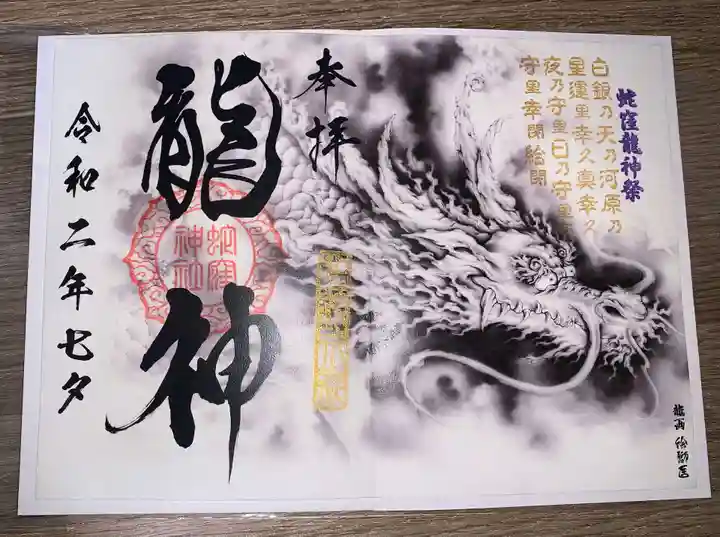 蛇窪龍神祭
白銀乃天乃河原乃
星運里幸久真幸久
夜乃守里日乃守里
守里幸閉給閉
奉拝
龍神
蛇窪
神社
令和二年七夕
龍画